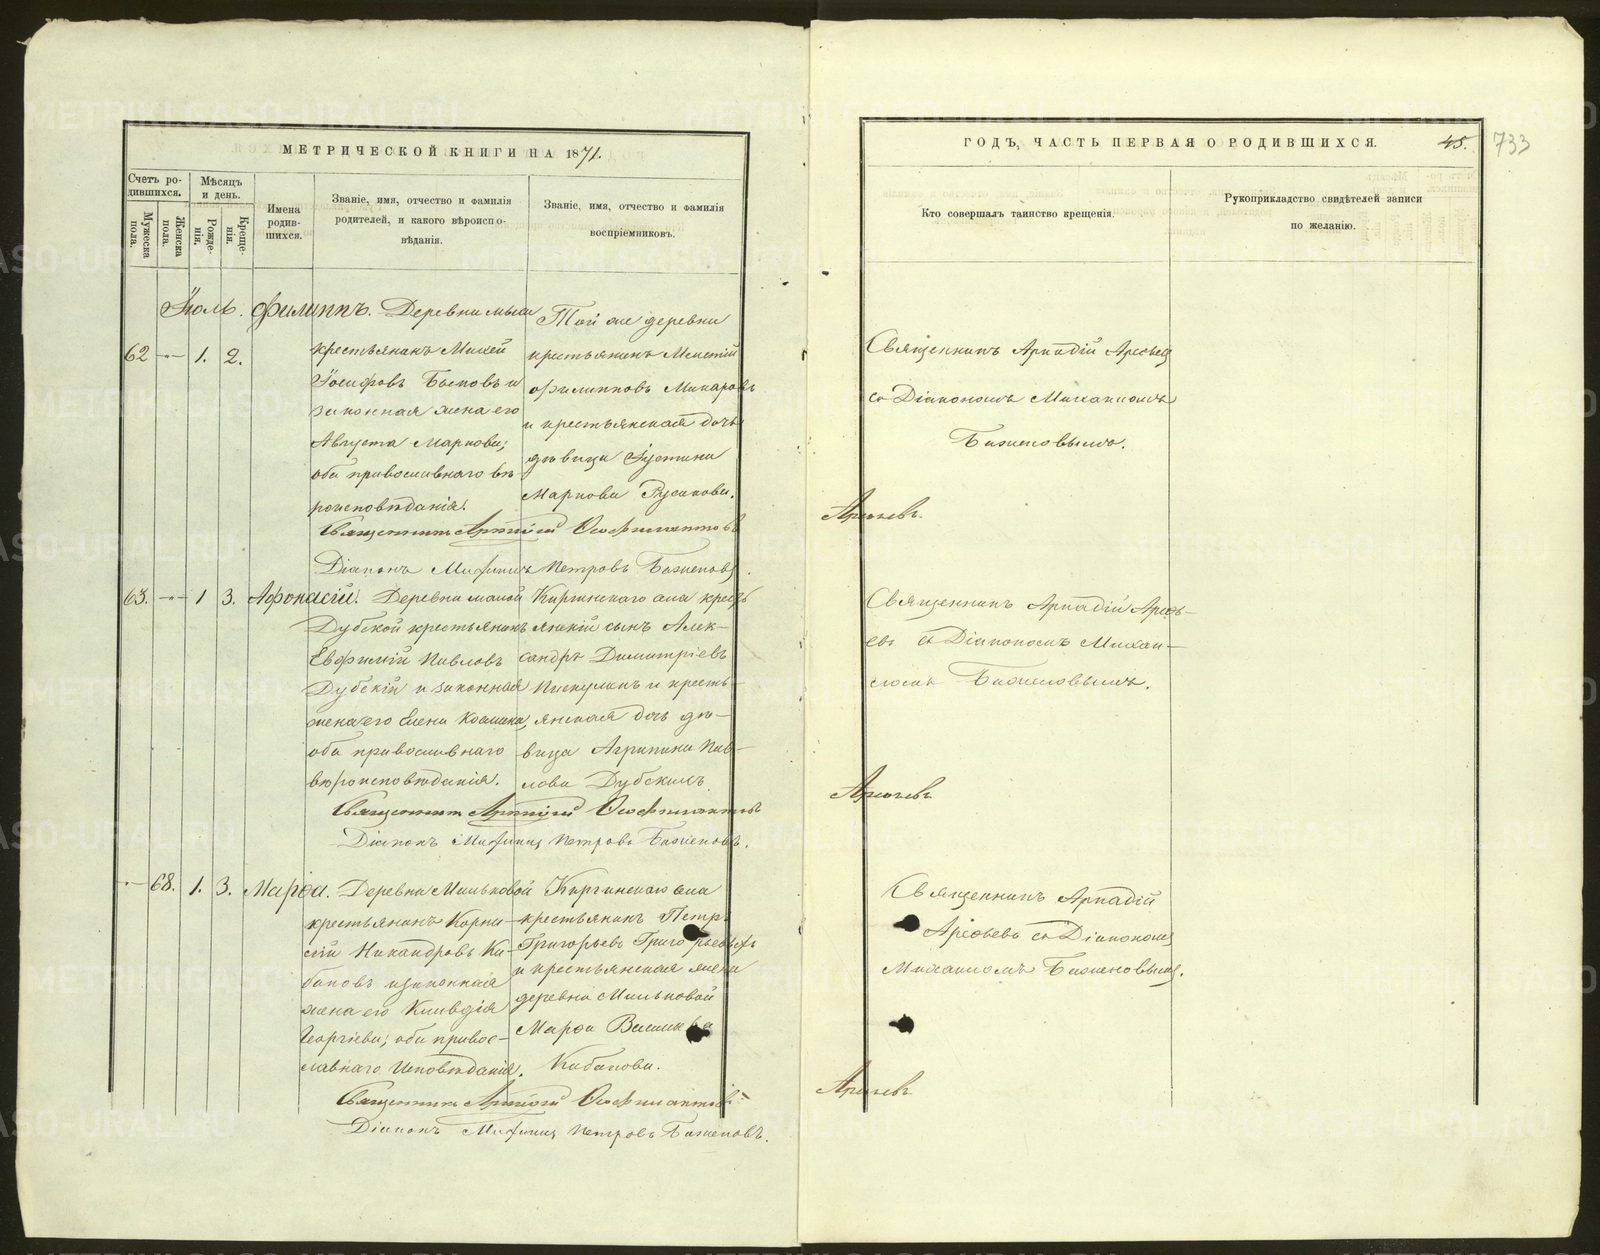 МЕТРИЧЕСКОЙ КНИГИ НА 1871.
Счетъ ро-
дившихся.
Мужеска пола.
Женска пола.
Мѣсяцъ
и день.
Рожде-
нія.
Креще-
нія.
Имена
родив-
шихся.
Званіе, имя, отчество и фамилія
родителей, и какого вѣроиспо-
вѣданія.
Званіе, имя, отчество и фамилія
воспріемниковъ.
Іюль. Филиппъ. Деревни
62 — 1. 2.
крестьянинъ Михей
Іосифовъ Быковъ и
законная жена его
Августа Маркова;
оба православнаго вѣ-
роисповѣданія.
Той же деревни
крестьянинъ
Филипповъ Макаровъ
и крестьянская дочь
дѣвица Іустина
Маркова Русакова.
Священникъ
Діаконъ Михаилъ Петровъ Баженовъ.
63. — 1 3. Афонасій. Деревни малой
Дубской крестьянинъ
Евфимій Павловъ
Дубскій и законная
жена его Елена Космина,
оба православнаго
вѣроисповѣданія.
Киргинскаго села кресть-
янскій сынъ Алек-
сандръ Димитріевъ
Пискулинъ и кресть-
янская дочь дѣ-
вица Агрипина Пав-
лова Дубскихъ.
Священникъ
Діаконъ Михаилъ Петровъ Баженовъ.
— 68. 1. 3. Марѳа. Деревни Мильковой
крестьянинъ Корни-
лій Никандровъ Ка-
бановъ и законная
жена его Клавдія
Георгіева; оба правос-
лавнаго исповѣданія.
Киргинскаго села
крестьянинъ Петръ
Григорьевъ Григорьевыхъ
и крестьянская жена
деревни Мильковой
Марѳа
Кабанова.
Священникъ
Діаконъ Михаилъ Петровъ Баженовъ.
ГОДЪ, ЧАСТЬ ПЕРВАЯ О РОДИВШИХСЯ.
45.
733
Кто совершалъ таинство крещенія.
Рукоприкладство свидѣтелей записи
по желанію.
Священникъ Аркадій Арефьевъ
съ Діакономъ Михаиломъ
Баженовымъ.
Арефьевъ.
Священникъ Аркадій Арефь-
евъ съ Діакономъ Михаи-
ломъ Баженовымъ.
Арефьевъ
Священникъ Аркадій
Арефьевъ съ Діакономъ
Михаиломъ Баженовымъ.
Арефьевъ
METRIKI.GASO-URAL.RU